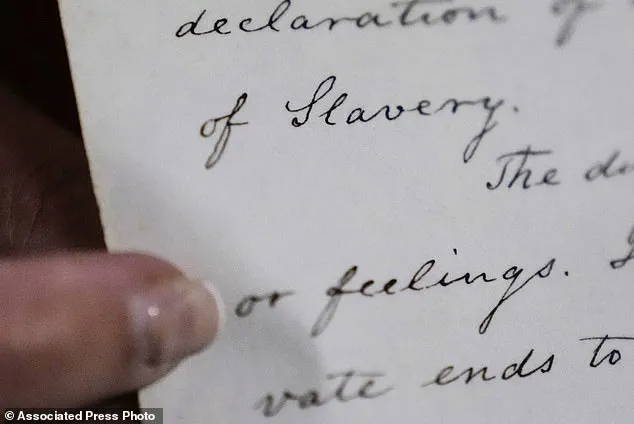 declaration of
of Slavery.
The
or feelings.
vate ends to
© Associated Press Photo